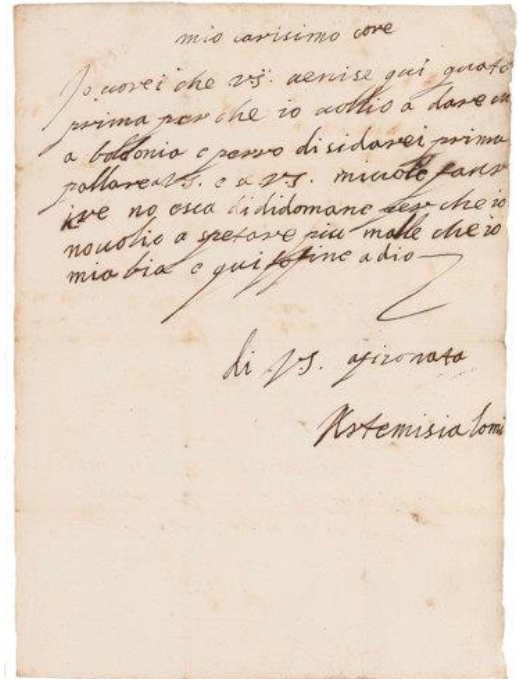 mio carisimo core
Io vorei che vs. venise qui quato
prima per che io vollio a dare
a bollonia e perro disidarei prima
pallare a VS. e a VS. mi vole
no esca di didomane per che io
no volio a spetare piu malle che io
mia bia e qui fo fine a dio
di VS. afizonata
Artemisia lomi